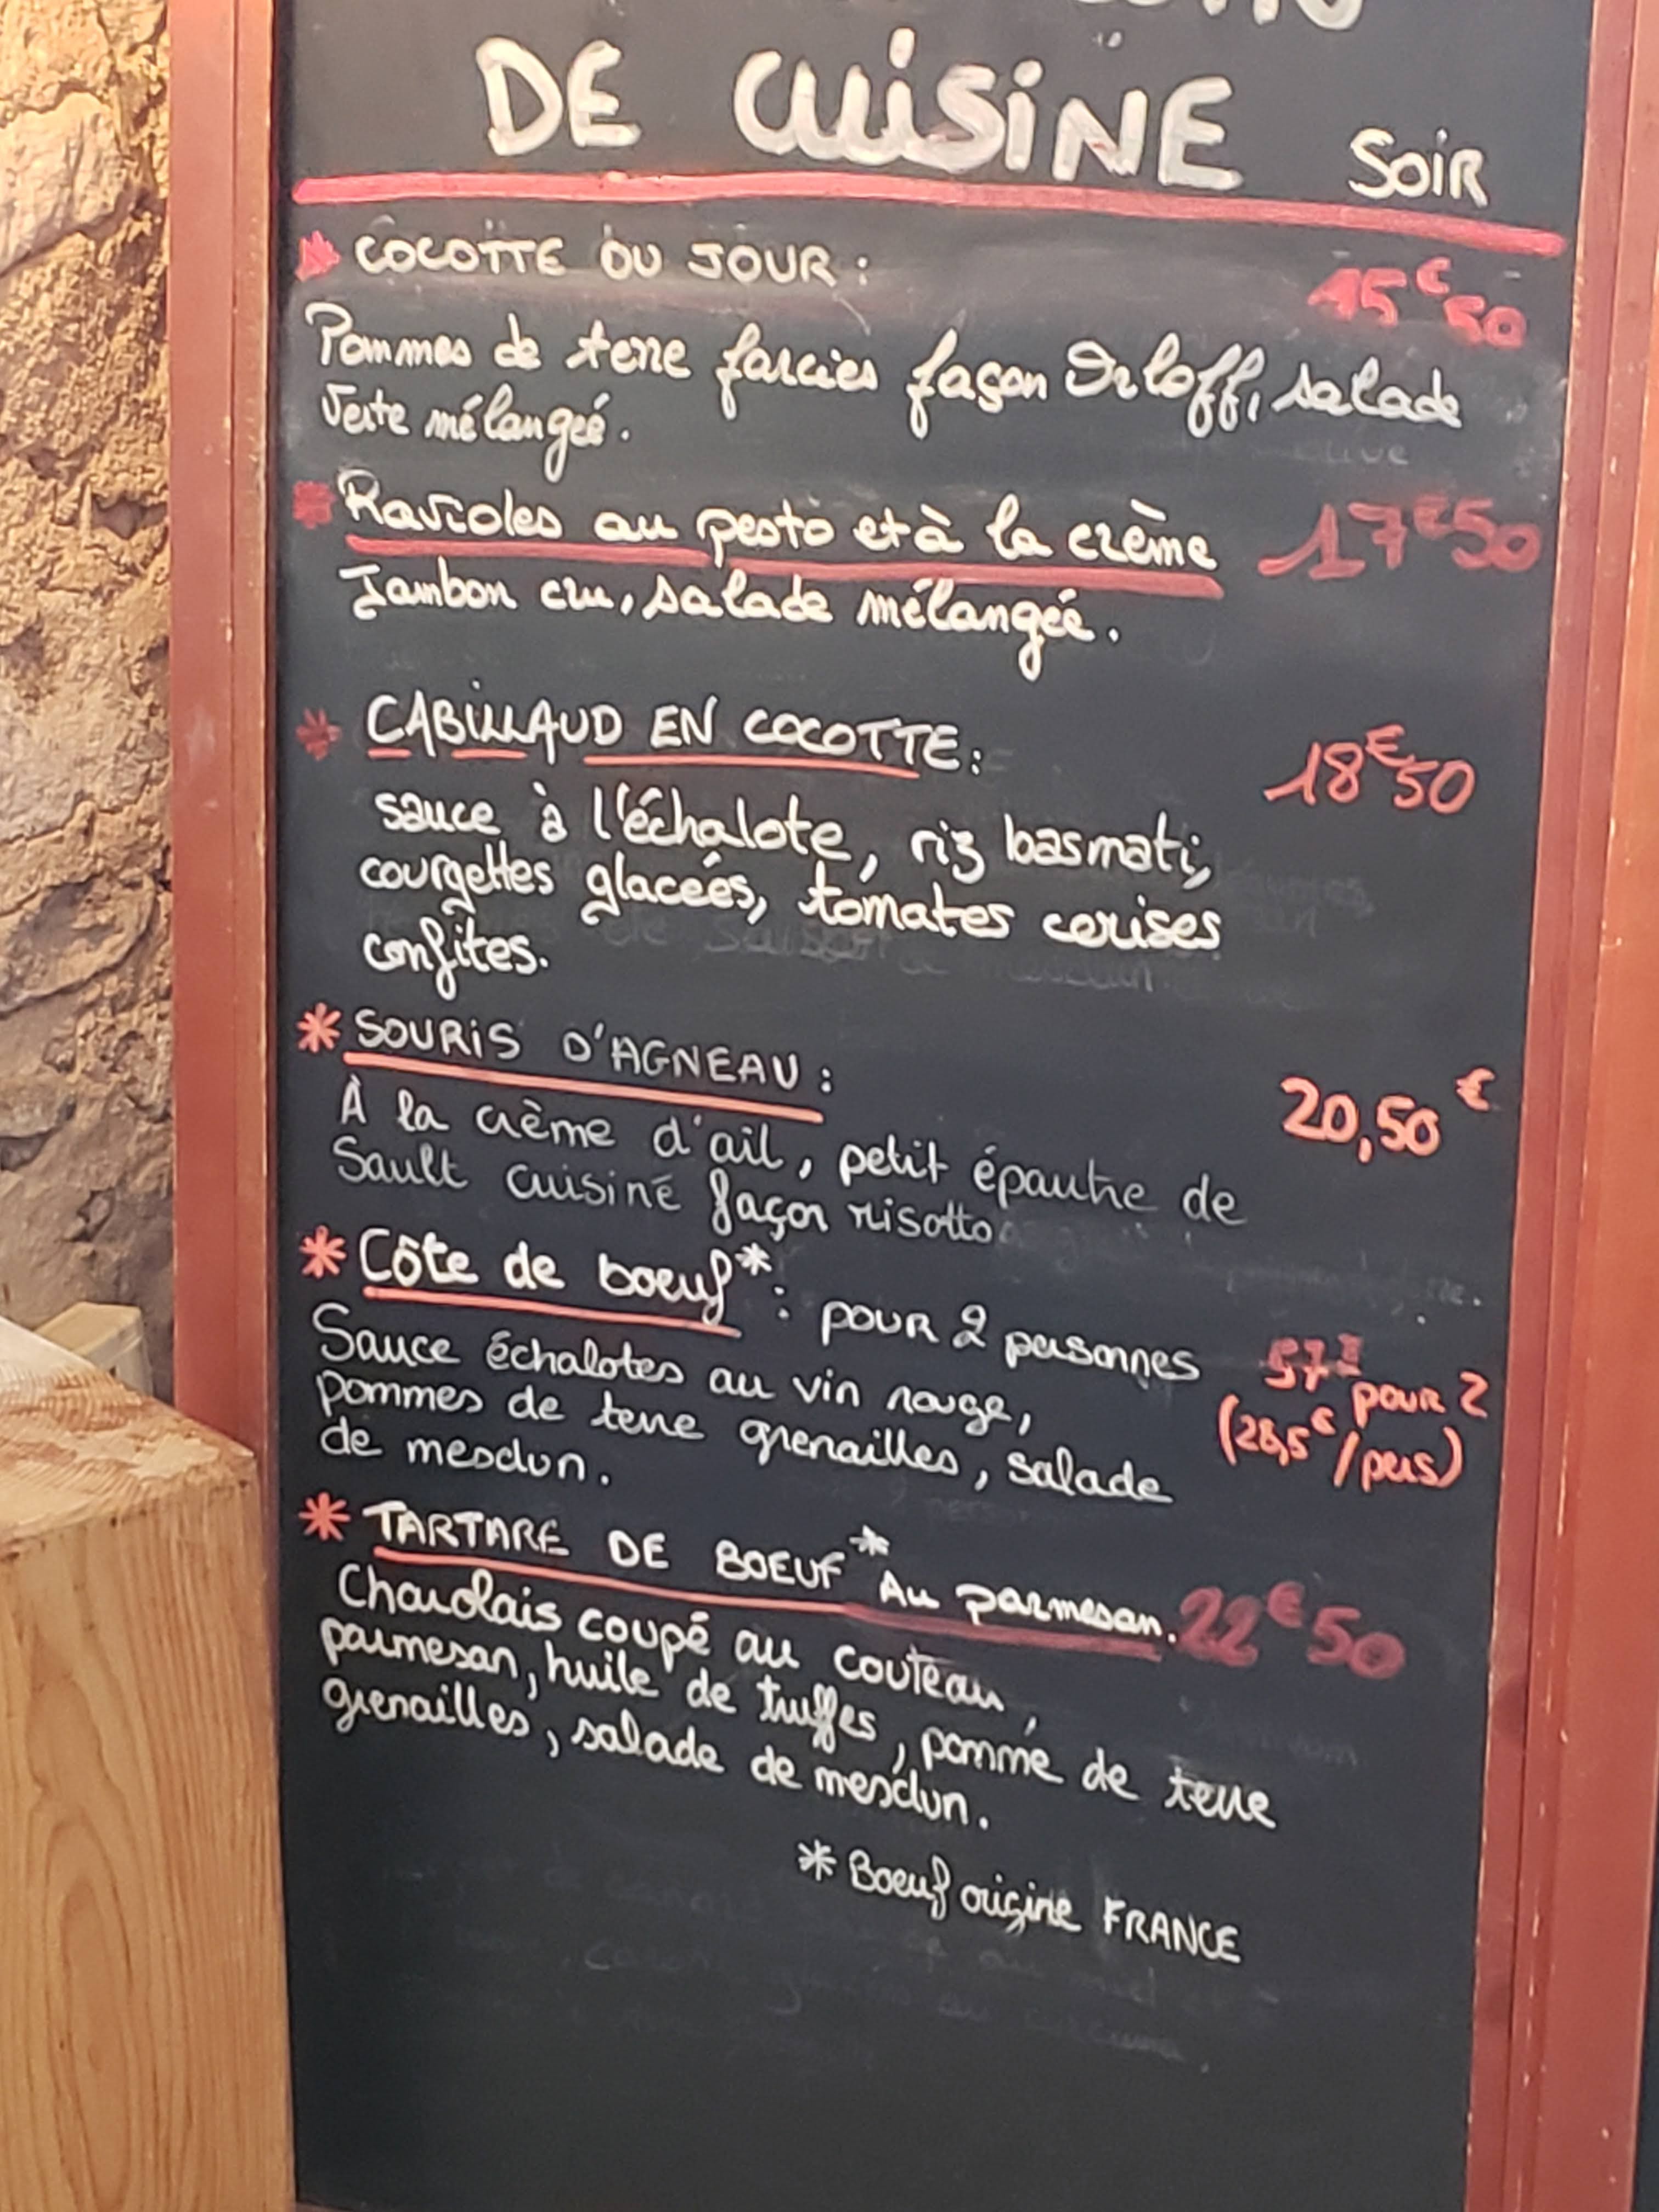 DE CUISINE SOIR
COCOTTE DU JOUR : 15€50
Pommes de terre farcies façon Orloff, salade
verte mélangée.
Ravioles au pesto et à la crème 17€50
Jambon cru, salade mélangée.
* CABILLAUD EN COCOTTE: 18€50
sauce à l'échalote, riz basmati,
courgettes glacées, tomates cerises
confites.
* SOURIS D'AGNEAU : 20,50€
À la crème d'ail, petit épautre de
Sault cuisiné façon risotto
* Côte de boeuf* : pour 2 personnes 57€ pour 2
Sauce échalotes au vin rouge, (28,5€/pers)
pommes de terre grenailles, salade
de mesclun.
* TARTARE DE BOEUF* Au parmesan. 22€50
Charolais coupé au couteau,
parmesan, huile de truffes, pomme de terre
grenailles, salade de mesclun.
* Boeuf origine FRANCE